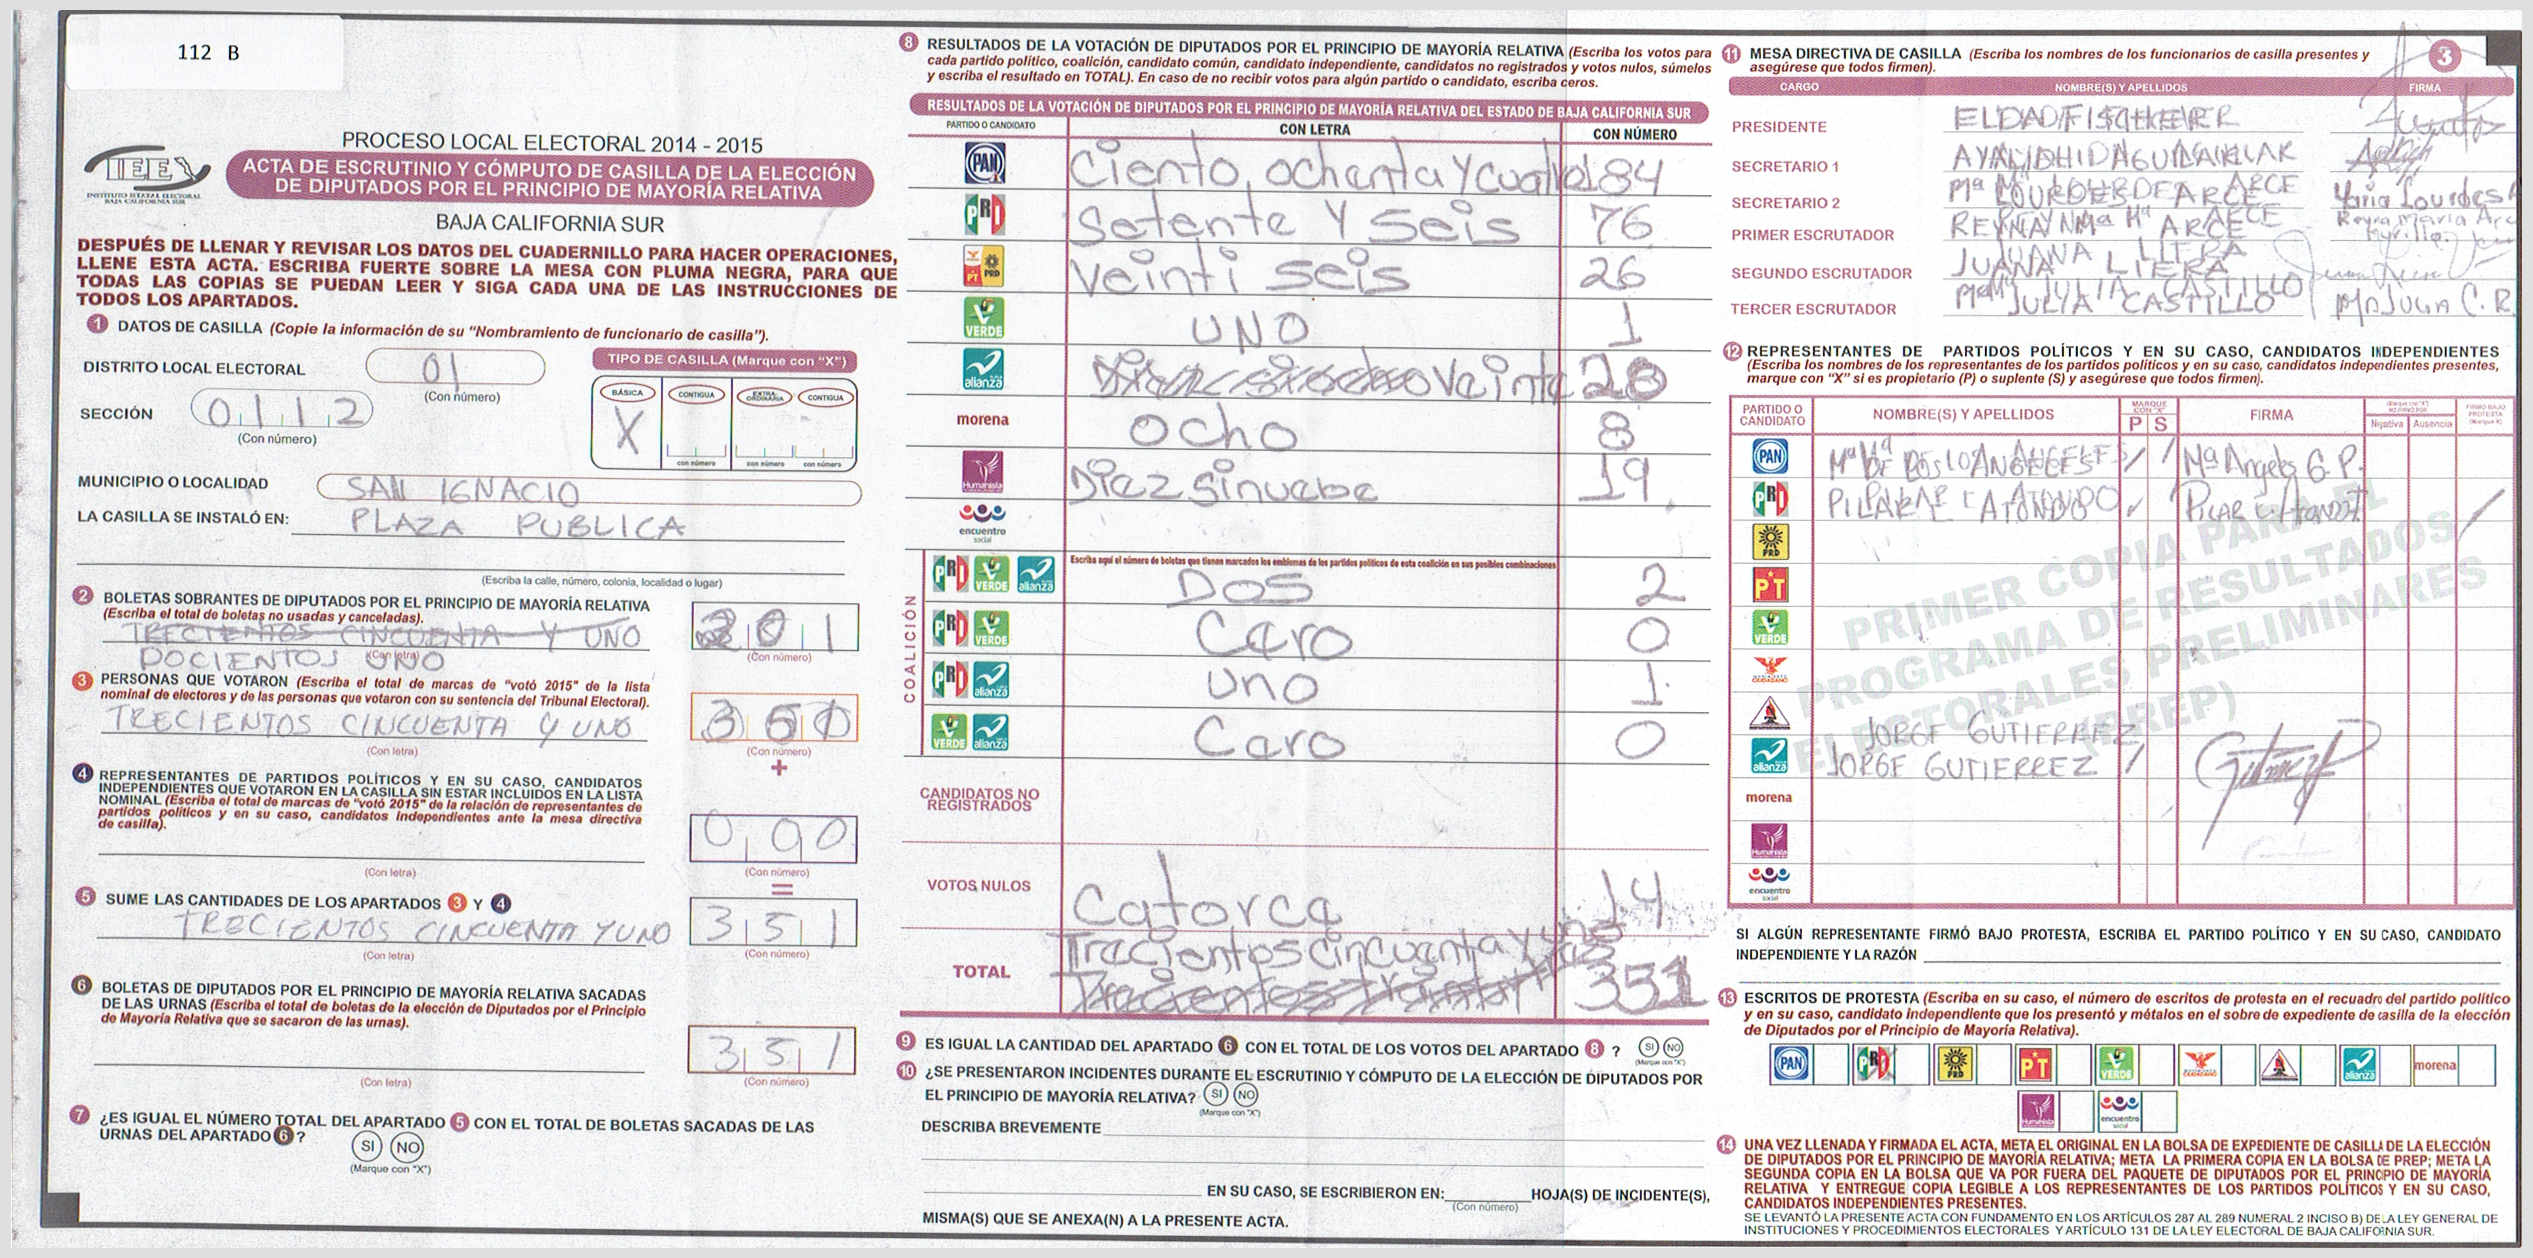 112 B
IEEI
INSTITUTO ESTATAL ELECTORAL
BAJA CALIFORNIA SUR
PROCESO LOCAL ELECTORAL 2014 - 2015
ACTA DE ESCRUTINIO Y CÓMPUTO DE CASILLA DE LA ELECCIÓN
DE DIPUTADOS POR EL PRINCIPIO DE MAYORÍA RELATIVA
BAJA CALIFORNIA SUR
DESPUÉS DE LLENAR Y REVISAR LOS DATOS DEL CUADERNILLO PARA HACER OPERACIONES,
LLENE ESTA ACTA. ESCRIBA FUERTE SOBRE LA MESA CON PLUMA NEGRA, PARA QUE
TODAS LAS COPIAS SE PUEDAN LEER Y SIGA CADA UNA DE LAS INSTRUCCIONES DE
TODOS LOS APARTADOS.
1 DATOS DE CASILLA (Copie la información de su "Nombramiento de funcionario de casilla").
DISTRITO LOCAL ELECTORAL 01
(Con número)
TIPO DE CASILLA (Marque con "X")
BÁSICA CONTIGUA EXTRAORDINARIA CONTIGUA
X
con número con número con número
SECCIÓN 0112
(Con número)
MUNICIPIO O LOCALIDAD SAN IGNACIO
LA CASILLA SE INSTALÓ EN: PLAZA PUBLICA
(Escriba la calle, número, colonia, localidad o lugar)
2 BOLETAS SOBRANTES DE DIPUTADOS POR EL PRINCIPIO DE MAYORÍA RELATIVA
(Escriba el total de boletas no usadas y canceladas).
TRECIENTOS CINCUENTA Y UNO
DOCIENTOS UNO 201
(Con letra) (Con número)
3 PERSONAS QUE VOTARON (Escriba el total de marcas de "votó 2015" de la lista
nominal de electores y de las personas que votaron con su sentencia del Tribunal Electoral).
TRECIENTOS CINCUENTA Y UNO 351
(Con letra) (Con número)
+
4 REPRESENTANTES DE PARTIDOS POLÍTICOS Y EN SU CASO, CANDIDATOS
INDEPENDIENTES QUE VOTARON EN LA CASILLA SIN ESTAR INCLUIDOS EN LA LISTA
NOMINAL (Escriba el total de marcas de "votó 2015" de la relación de representantes de
partidos políticos y en su caso, candidatos independientes ante la mesa directiva
de casilla).
000
(Con letra) (Con número)
=
5 SUME LAS CANTIDADES DE LOS APARTADOS 3 Y 4
TRECIENTOS CINCUENTA Y UNO 351
(Con letra) (Con número)
6 BOLETAS DE DIPUTADOS POR EL PRINCIPIO DE MAYORÍA RELATIVA SACADAS
DE LAS URNAS (Escriba el total de boletas de la elección de Diputados por el Principio
de Mayoría Relativa que se sacaron de las urnas).
351
(Con letra) (Con número)
7 ¿ES IGUAL EL NÚMERO TOTAL DEL APARTADO 5 CON EL TOTAL DE BOLETAS SACADAS DE LAS
URNAS DEL APARTADO 6 ?
SI NO
(Marque con "X")
8 RESULTADOS DE LA VOTACIÓN DE DIPUTADOS POR EL PRINCIPIO DE MAYORÍA RELATIVA (Escriba los votos para
cada partido político, coalición, candidato común, candidato independiente, candidatos no registrados y votos nulos, súmelos
y escriba el resultado en TOTAL). En caso de no recibir votos para algún partido o candidato, escriba ceros.
RESULTADOS DE LA VOTACIÓN DE DIPUTADOS POR EL PRINCIPIO DE MAYORÍA RELATIVA DEL ESTADO DE BAJA CALIFORNIA SUR
PARTIDO O CANDIDATO CON LETRA CON NÚMERO
PAN Ciento, ochenta y cuatro 184
PRI Setente y seis 76
PT PRD veinti seis 26
VERDE UNO 1
alianza veinte 20
morena ocho 8
Humanista Diez sinuebe 19
encuentro social
COALICIÓN
Escriba aquí el número de boletas que tienen marcados los emblemas de los partidos políticos de esta coalición en sus posibles combinaciones
PRI VERDE alianza DOS 2
PRI VERDE Cero 0
PRI alianza uno 1
VERDE alianza Cero 0
CANDIDATOS NO
REGISTRADOS
VOTOS NULOS Catorce 14
TOTAL Trecientos cincuenta y uno 351
9 ES IGUAL LA CANTIDAD DEL APARTADO 6 CON EL TOTAL DE LOS VOTOS DEL APARTADO 8 ? SI NO
(Marque con "X")
10 ¿SE PRESENTARON INCIDENTES DURANTE EL ESCRUTINIO Y CÓMPUTO DE LA ELECCIÓN DE DIPUTADOS POR
EL PRINCIPIO DE MAYORÍA RELATIVA? SI NO
(Marque con "X")
DESCRIBA BREVEMENTE
EN SU CASO, SE ESCRIBIERON EN: HOJA(S) DE INCIDENTE(S),
(Con número)
MISMA(S) QUE SE ANEXA(N) A LA PRESENTE ACTA.
11 MESA DIRECTIVA DE CASILLA (Escriba los nombres de los funcionarios de casilla presentes y
asegúrese que todos firmen).
3
CARGO NOMBRE(S) Y APELLIDOS FIRMA
PRESIDENTE ELDAD FISCHER
SECRETARIO 1 AYALID HID AGUILAR
SECRETARIO 2 Mª LOURDES DE ARCE Maria Lourdes A
PRIMER ESCRUTADOR REYNA Mª ARCE Reyna Maria Arc
SEGUNDO ESCRUTADOR JUANA LIERA
TERCER ESCRUTADOR Mª JULIA CASTILLO Ma JULIA C. R.
12 REPRESENTANTES DE PARTIDOS POLÍTICOS Y EN SU CASO, CANDIDATOS INDEPENDIENTES
(Escriba los nombres de los representantes de los partidos políticos y en su caso, candidatos independientes presentes,
marque con "X" si es propietario (P) o suplente (S) y asegúrese que todos firmen).
PARTIDO O
CANDIDATO NOMBRE(S) Y APELLIDOS MARQUE CON "X" P S FIRMA Negativa Ausencia FIRMÓ BAJO PROTESTA (Marque X)
PAN Mª DE LOS ANGELES / Mª Angeles G. P.
PRI PILAR C ATONDO / PILAR C. Atondo /
PRD
PT
VERDE
MOVIMIENTO CIUDADANO
JORGE GUTIERREZ
alianza JORGE GUTIERREZ /
morena
Humanista
encuentro social
PRIMER COPIA PARA EL
PROGRAMA DE RESULTADOS
ELECTORALES PRELIMINARES
(PREP)
SI ALGÚN REPRESENTANTE FIRMÓ BAJO PROTESTA, ESCRIBA EL PARTIDO POLÍTICO Y EN SU CASO, CANDIDATO
INDEPENDIENTE Y LA RAZÓN
13 ESCRITOS DE PROTESTA (Escriba en su caso, el número de escritos de protesta en el recuadro del partido político
y en su caso, candidato independiente que los presentó y métalos en el sobre de expediente de casilla de la elección
de Diputados por el Principio de Mayoría Relativa).
PAN PRI PRD PT VERDE alianza morena
Humanista encuentro social
14 UNA VEZ LLENADA Y FIRMADA EL ACTA, META EL ORIGINAL EN LA BOLSA DE EXPEDIENTE DE CASILLA DE LA ELECCIÓN
DE DIPUTADOS POR EL PRINCIPIO DE MAYORÍA RELATIVA; META LA PRIMERA COPIA EN LA BOLSA DE PREP; META LA
SEGUNDA COPIA EN LA BOLSA QUE VA POR FUERA DEL PAQUETE DE DIPUTADOS POR EL PRINCIPIO DE MAYORÍA
RELATIVA Y ENTREGUE COPIA LEGIBLE A LOS REPRESENTANTES DE LOS PARTIDOS POLÍTICOS Y EN SU CASO,
CANDIDATOS INDEPENDIENTES PRESENTES.
SE LEVANTÓ LA PRESENTE ACTA CON FUNDAMENTO EN LOS ARTÍCULOS 287 AL 289 NUMERAL 2 INCISO B) DE LA LEY GENERAL DE
INSTITUCIONES Y PROCEDIMIENTOS ELECTORALES Y ARTÍCULO 131 DE LA LEY ELECTORAL DE BAJA CALIFORNIA SUR.